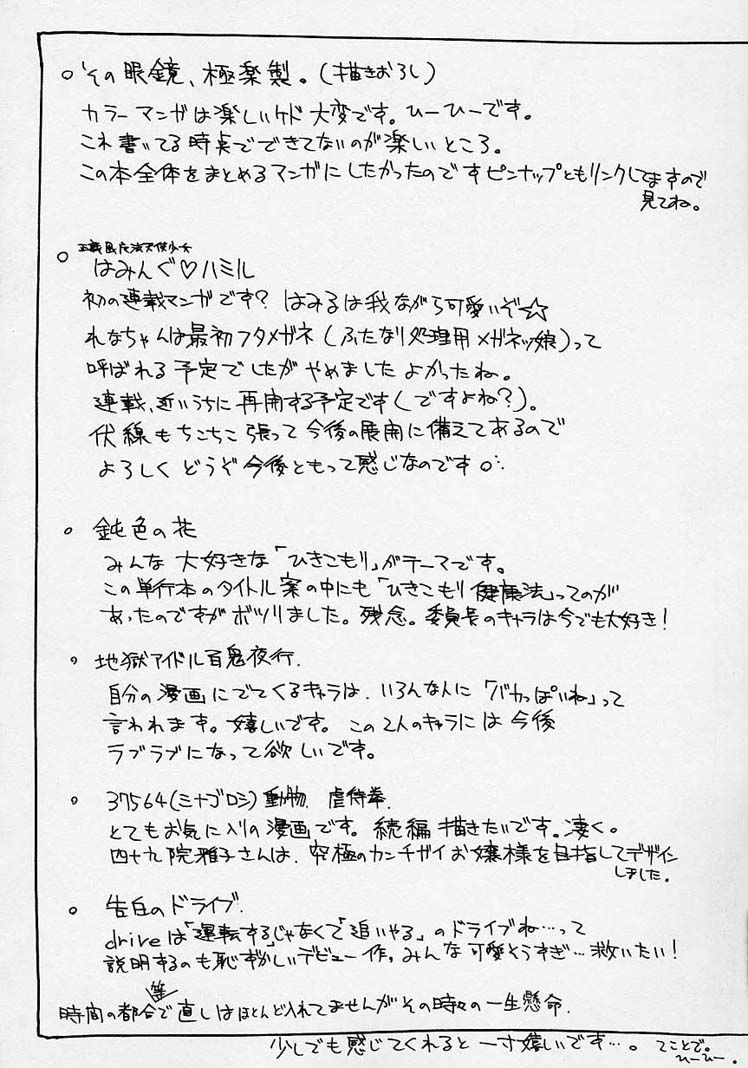 その眼鏡、極楽製。(描きおろし)
カラーマンガは楽しいケド大変です。ひーひーです。
これ書いてる時点でできてないのが楽しいところ。
この本全体をまとめるマンガにしたかったのですピンナップともリンクしてますので
見てね。
法天使少女
はみんぐ♡ハミル
初の連載マンガです? はみるは我ながら可愛いぞ☆
れなちゃんは最初フタメガネ(ふたなり処理用メガネッ娘)って
呼ばれる予定でしたがやめましたよかったね。
連載、近いうちに再開する予定です(ですよね?)。
伏線もちこちこ張って今後の展開に備えてあるので
よろしくどうぞ今後ともって感じなのです
鈍色の花
みんな大好きな「ひきこもり」がテーマです。
この単行本のタイトル案の中にも「ひきこもり健康法」ってのが
あったのですがボツりました。残念。委員長のキャラは今でも大好き!
地獄アイドル百鬼夜行.
自分の漫画にでてくるキャラは、いろんな人に「バカっぽいね」って
言われます。嬉しいです。この2人のキャラには今後
ラブラブになって欲しいです。
37564(ミナゴロシ)動物 虐待拳.
とてもお気に入りの漫画です。続編描きたいです。凄く。
四十九院雅子さんは、究極のカンチガイお嬢様を目指してデザイン
しました.
告白のドライブ.
driveは「運転する」じゃなくて「追いやる」のドライブね…って
説明するのも恥ずかしいデビュー作。みんな可愛そうすぎ…救いたい!
時間の都合等で直しはほとんど入れてませんがその時々の一生懸命.
少しでも感じてくれると一寸嬉しいです…。てことで。
ひーひー.